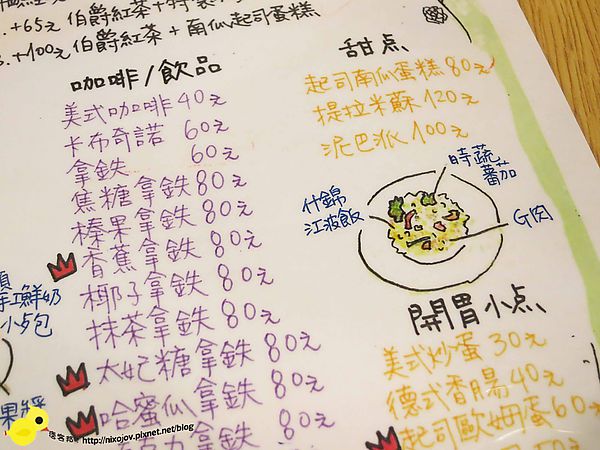 .+65元 伯爵紅茶+特製
.+100元 伯爵紅茶+南瓜起司蛋糕
咖啡/飲品
美式咖啡 40元
卡布奇諾 60元
拿鉄 60元
焦糖拿鉄 80元
榛果拿鉄 80元
香蕉拿鉄 80元
椰子拿鉄 80元
抹茶拿鉄 80元
太妃糖拿鉄 80元
哈蜜瓜拿鉄 80元
拿鉄 80元
甜点、
起司南瓜蛋糕 80元
提拉米蘇 120元
泥巴派 100元
時蔬
蕃茄
什錦
江波飯
G肉
開胃小点、
美式炒蛋 30元
德式香腸 40元
起司歐姆蛋 60
鮮奶
小包
果醬
痞客邦 http://nixojov.pixnet.net/blog